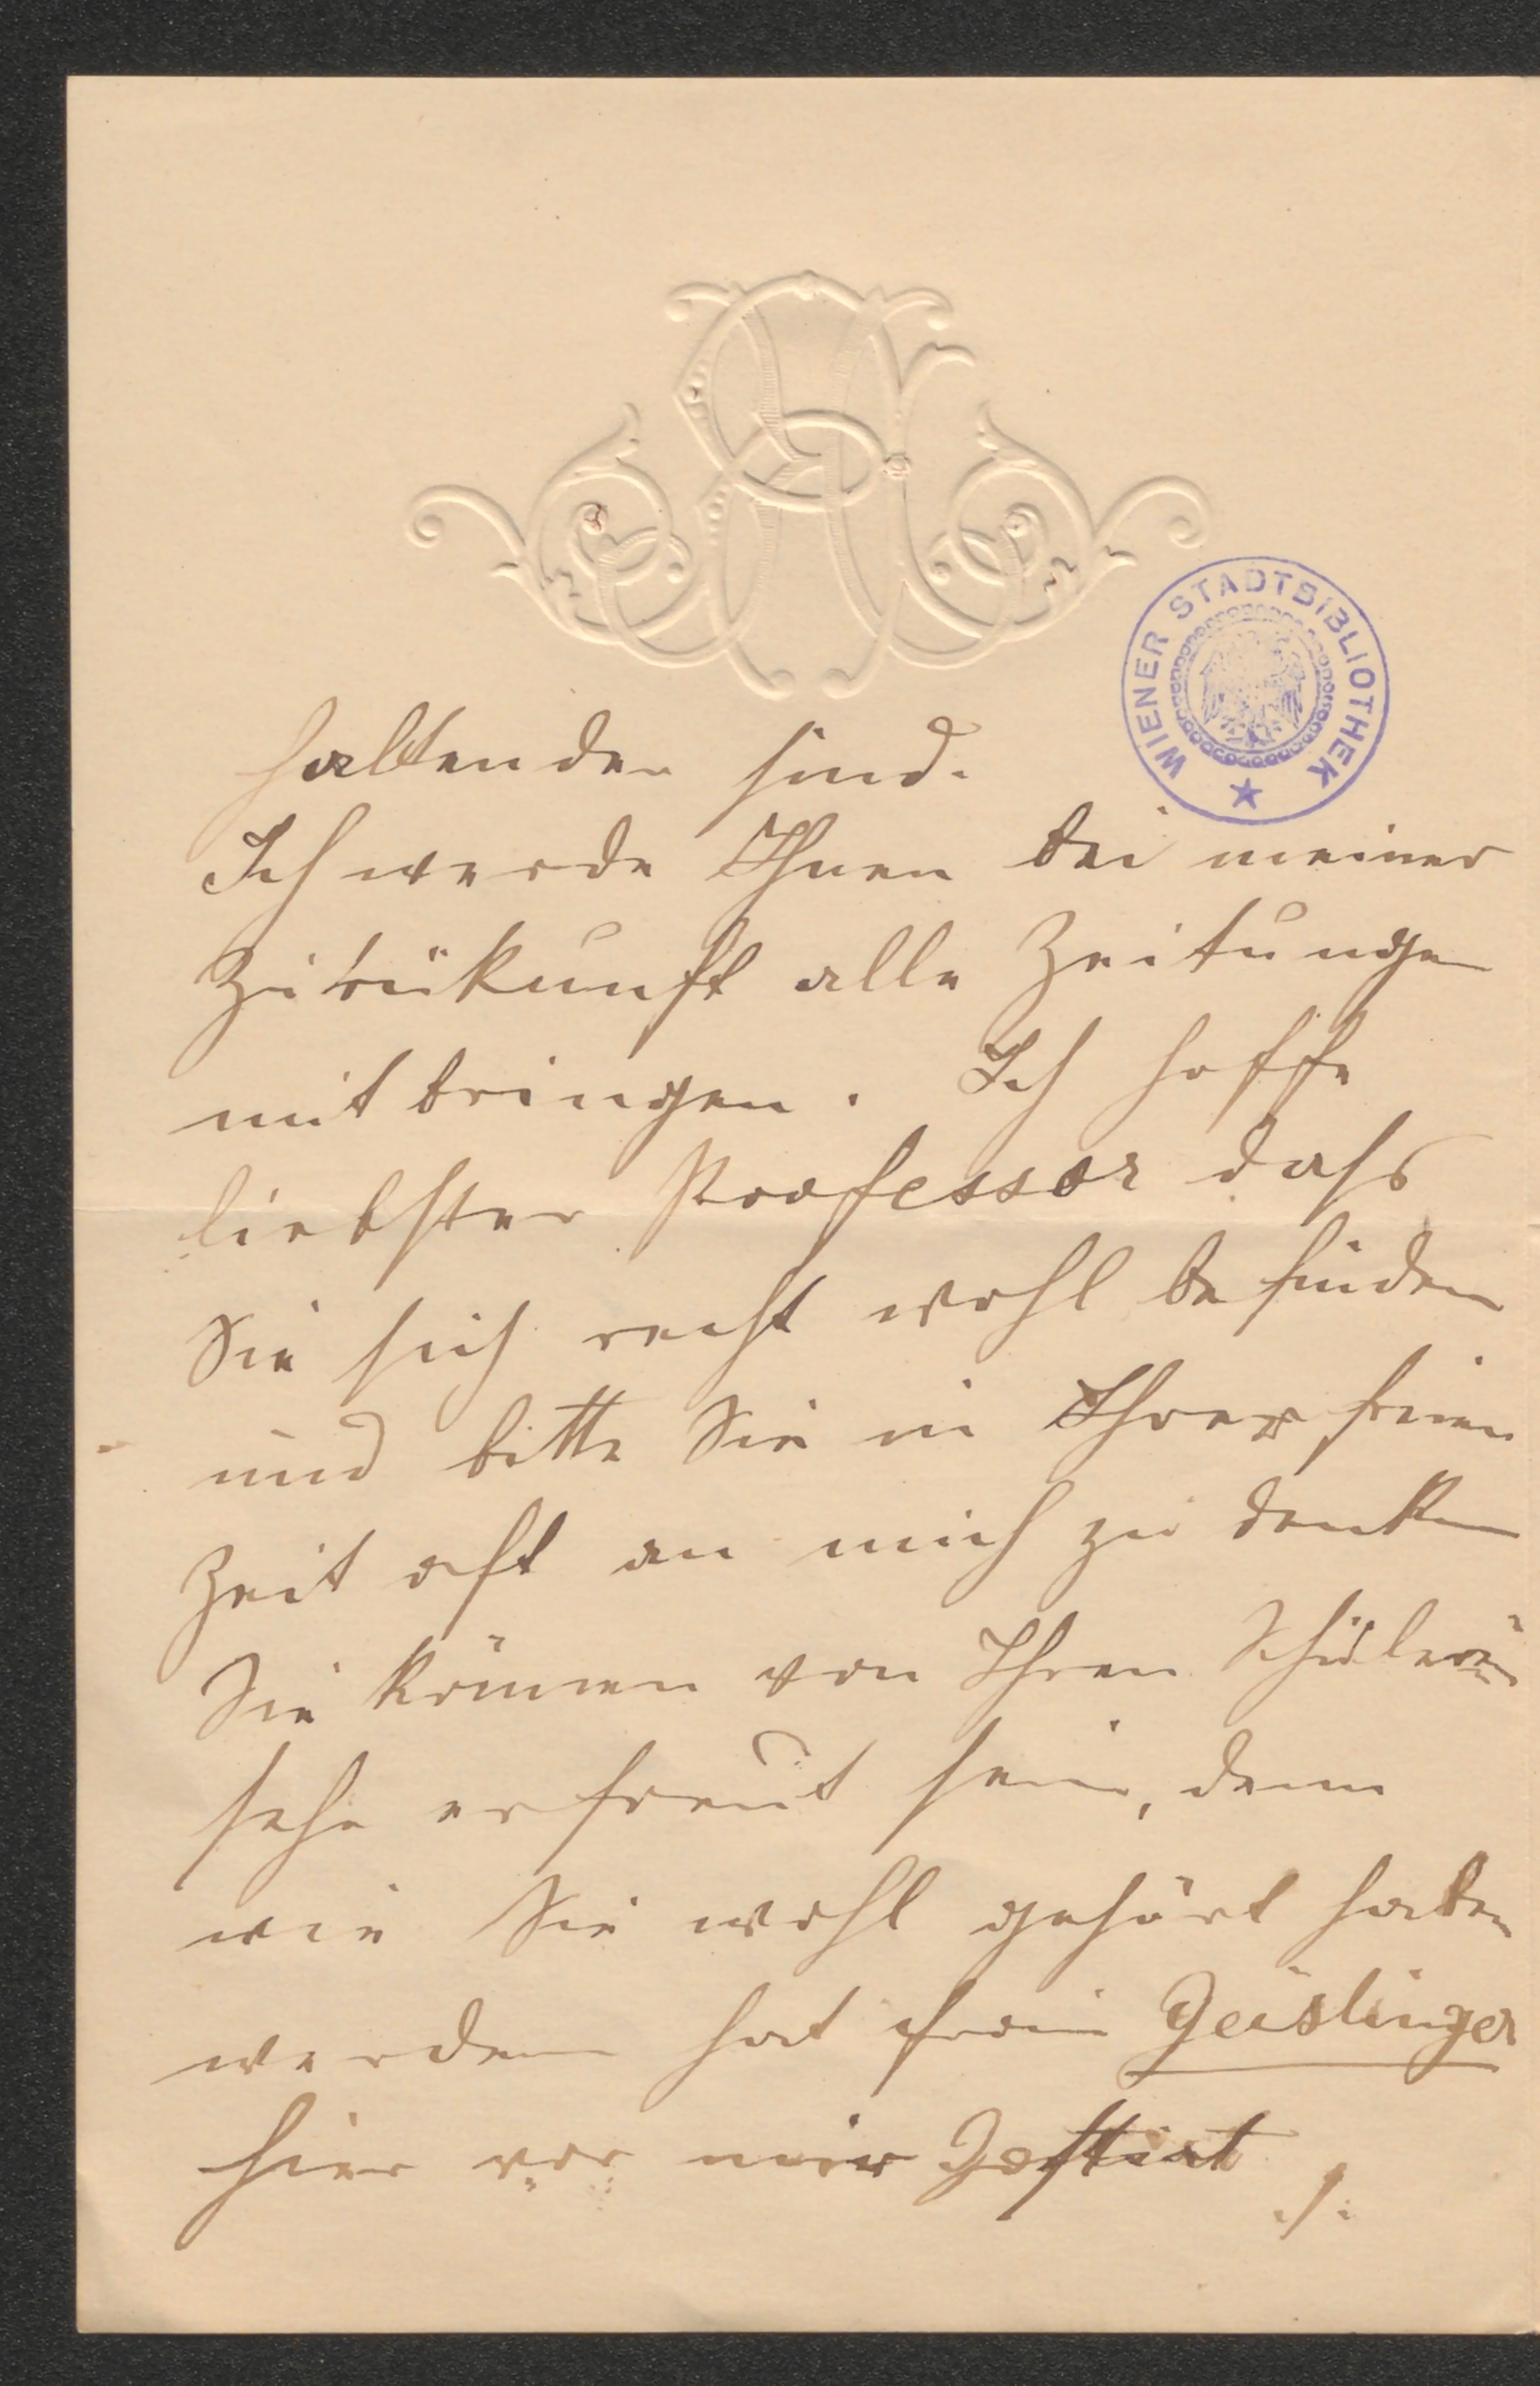 WIENER STADTBIBLIOTHEK
haltender sind.
Ich werde Ihnen bei meiner
Zurükunft alle Zeitungen
mitbringen. Ich hoffe
liebster Professor dass
Sie sich recht wohl befinden
und bitte Sie in Ihrer freien
Zeit oft an mich zu denken
Sie können von Ihren Schülern
sehr erfreut sein, denn
wie Sie wohl gehört haben
werden hat Frau Geislinger
hier vor mir Gastirt
./.